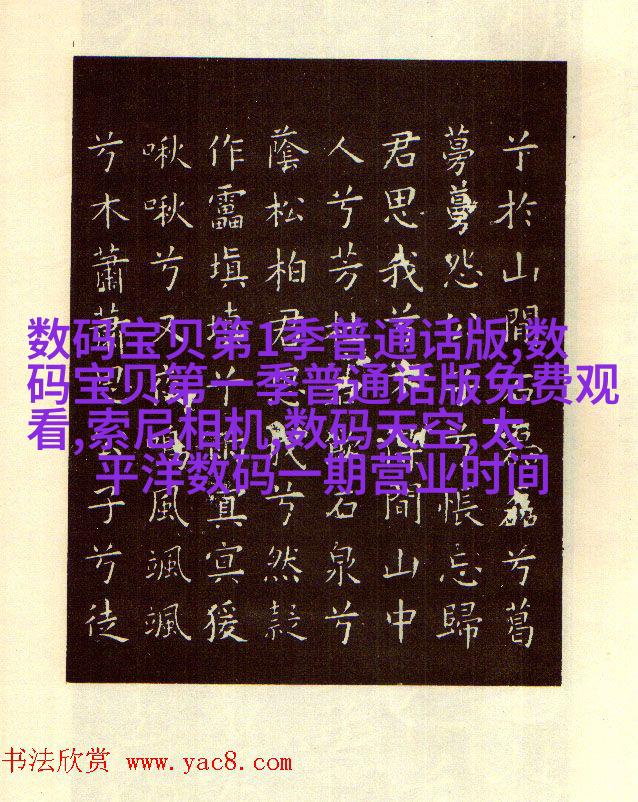 兮於山間石磊磊兮葛
蔓蔓怨兮悵忘歸
君思我間山中
人兮芳杜石泉兮
蔭松柏君我兮然疑
作靁填填兮冥冥猨
啾啾兮又鳴風颯颯
兮木蕭蕭子兮徒
数码宝贝第1季普通话版,数
码宝贝第一季普通话版免费观
看,索尼相机,数码天空,太
平洋数码一期营业时间
书法欣赏 www.yac8.com